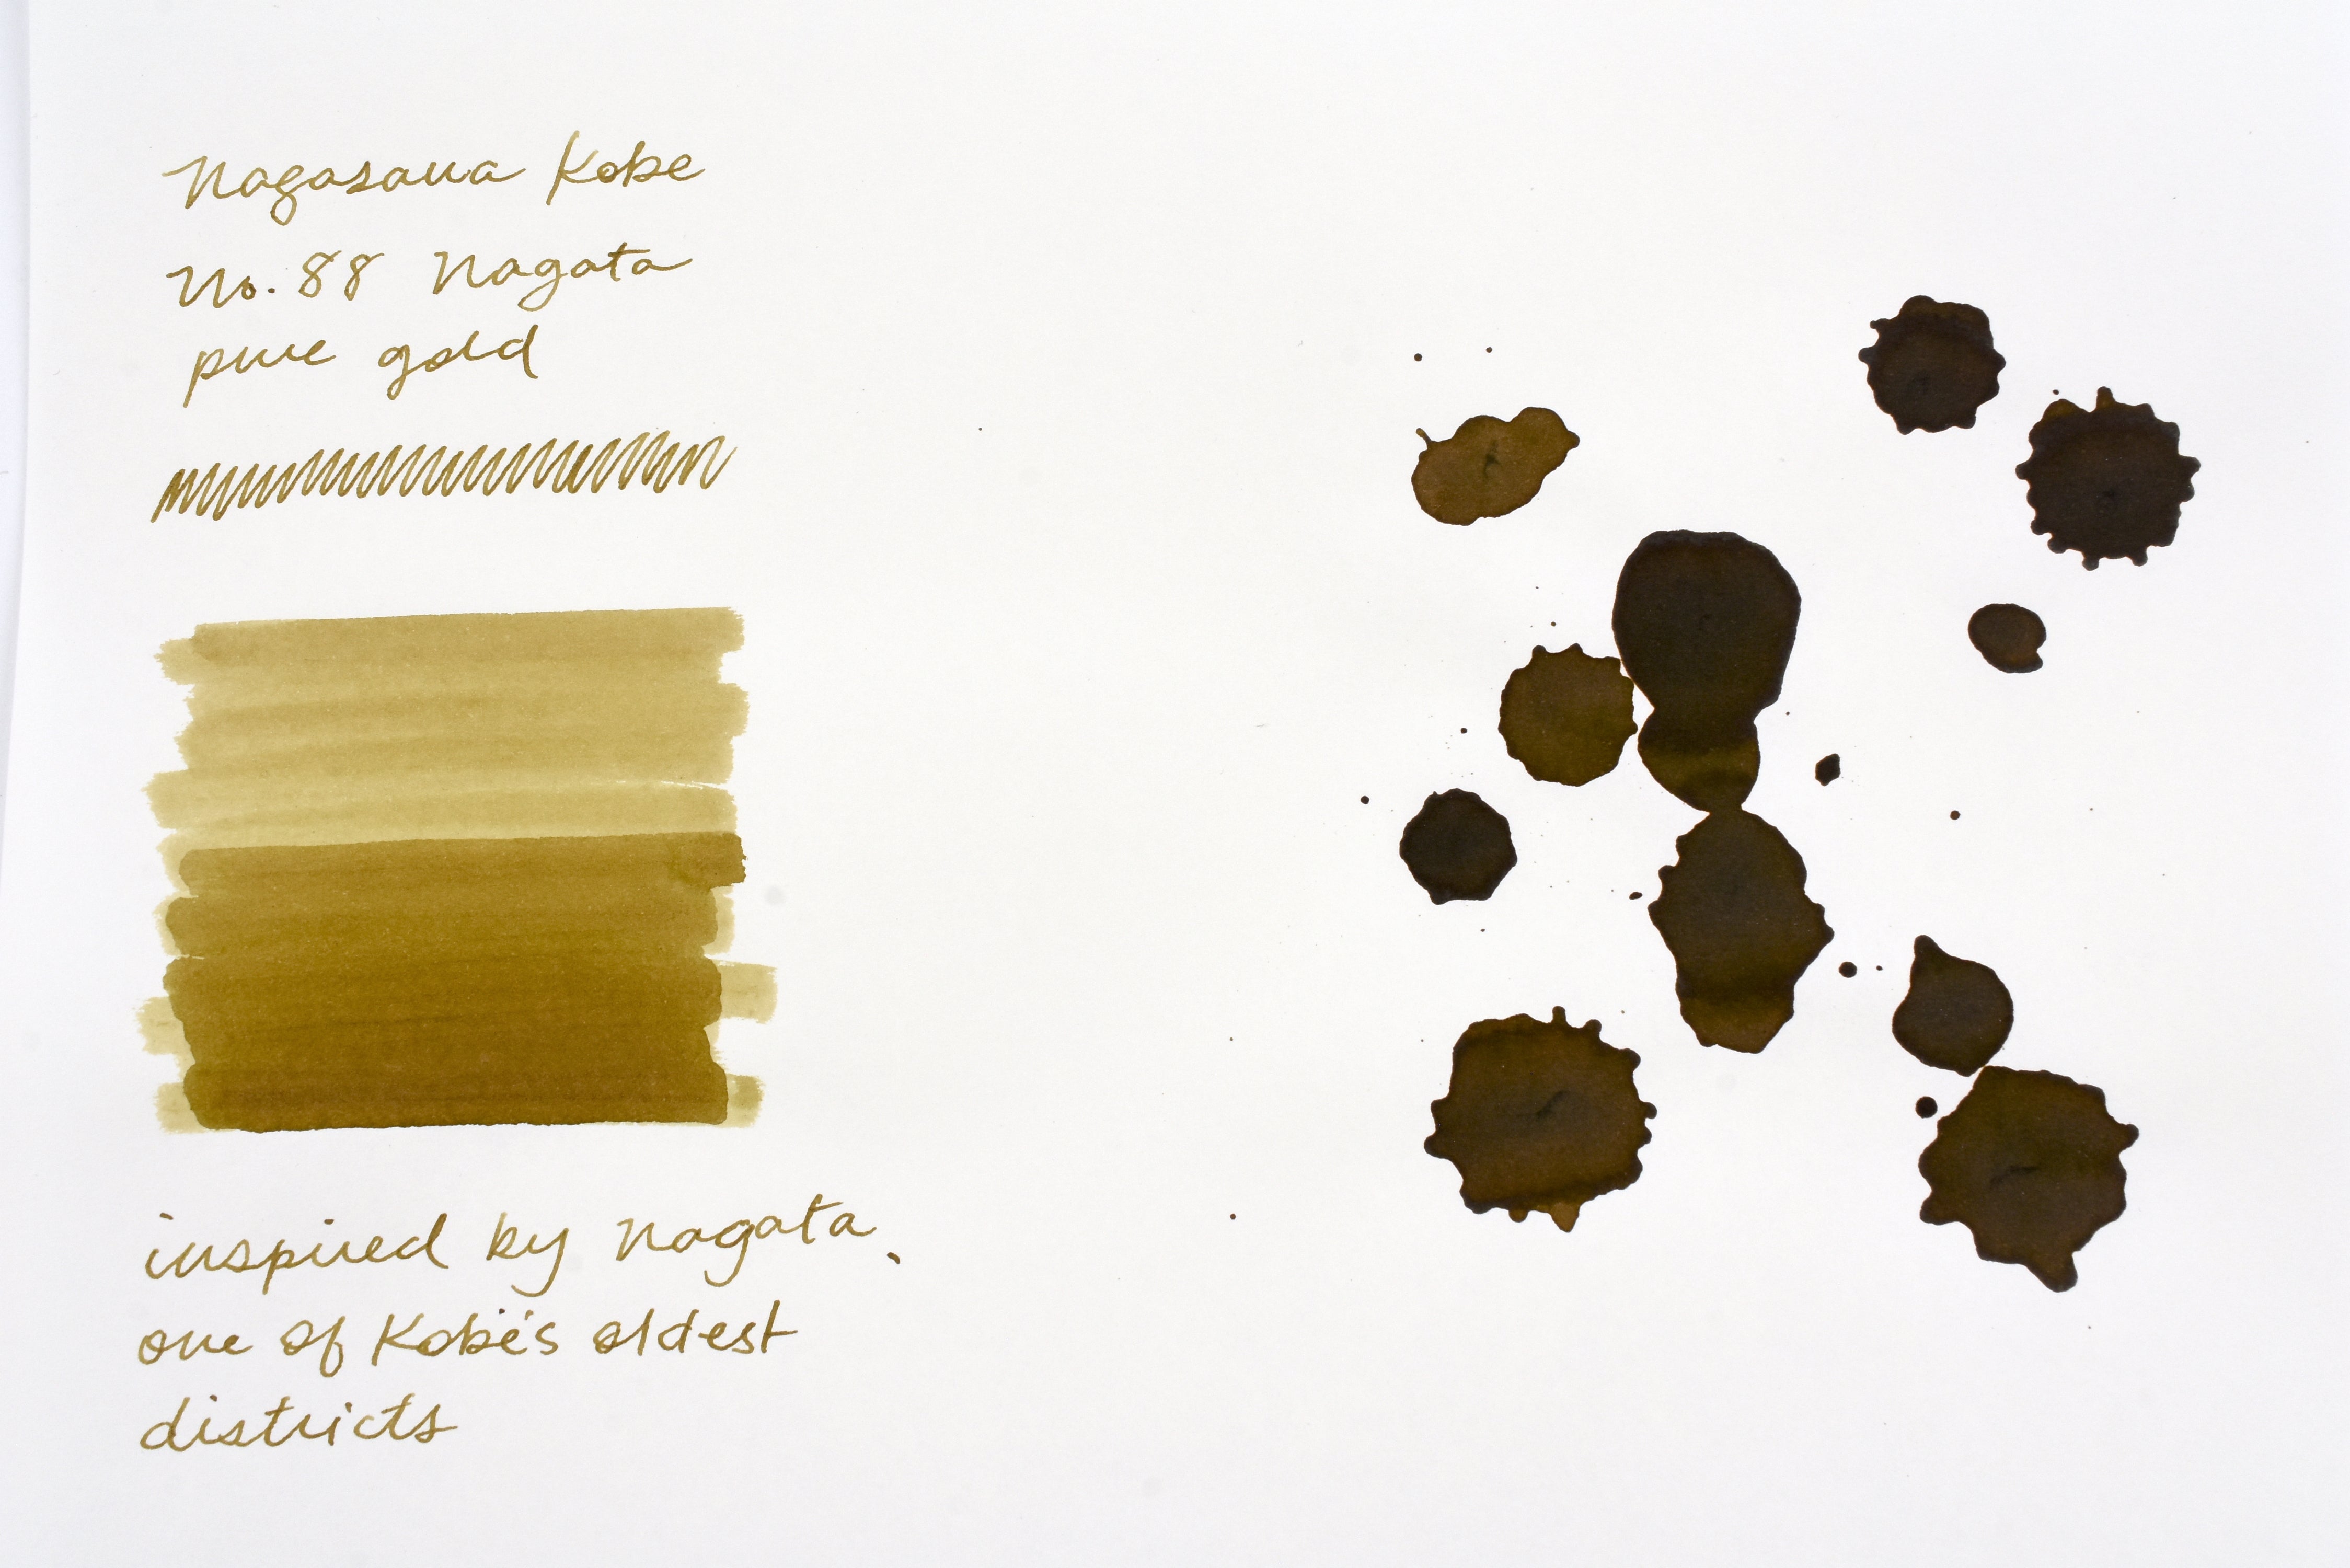 Nagasawa Kobe
No. 88 Nagata
pure gold
inspired by Nagata,
one of Kobe's oldest
districts